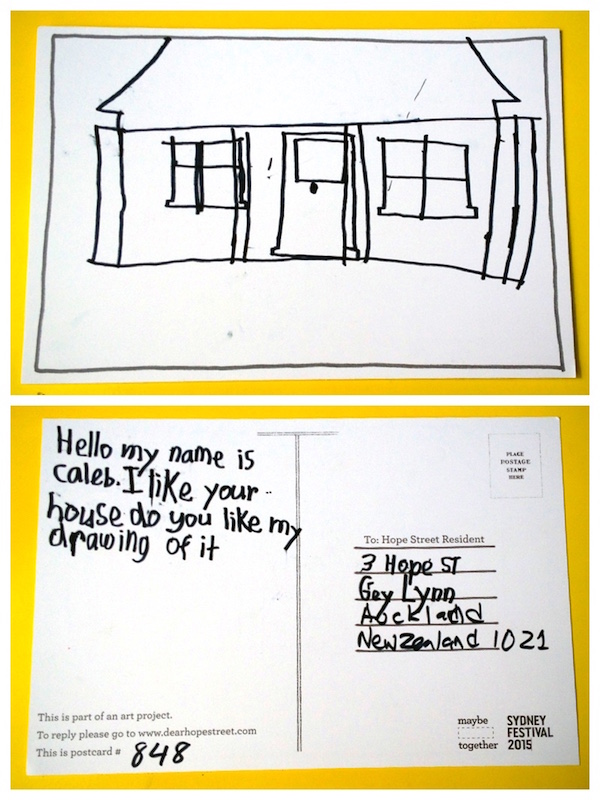 Hello my name is
caleb. I like your
house do you like my
drawing of it
PLACE
POSTAGE
STAMP
HERE
To: Hope Street Resident
3 Hope ST
Gey Lynn
Aockland
Newzealand 1021
This is part of an art project.
To reply please go to www.dearhopestreet.com
This is postcard # 848
maybe
together
SYDNEY
FESTIVAL
2015